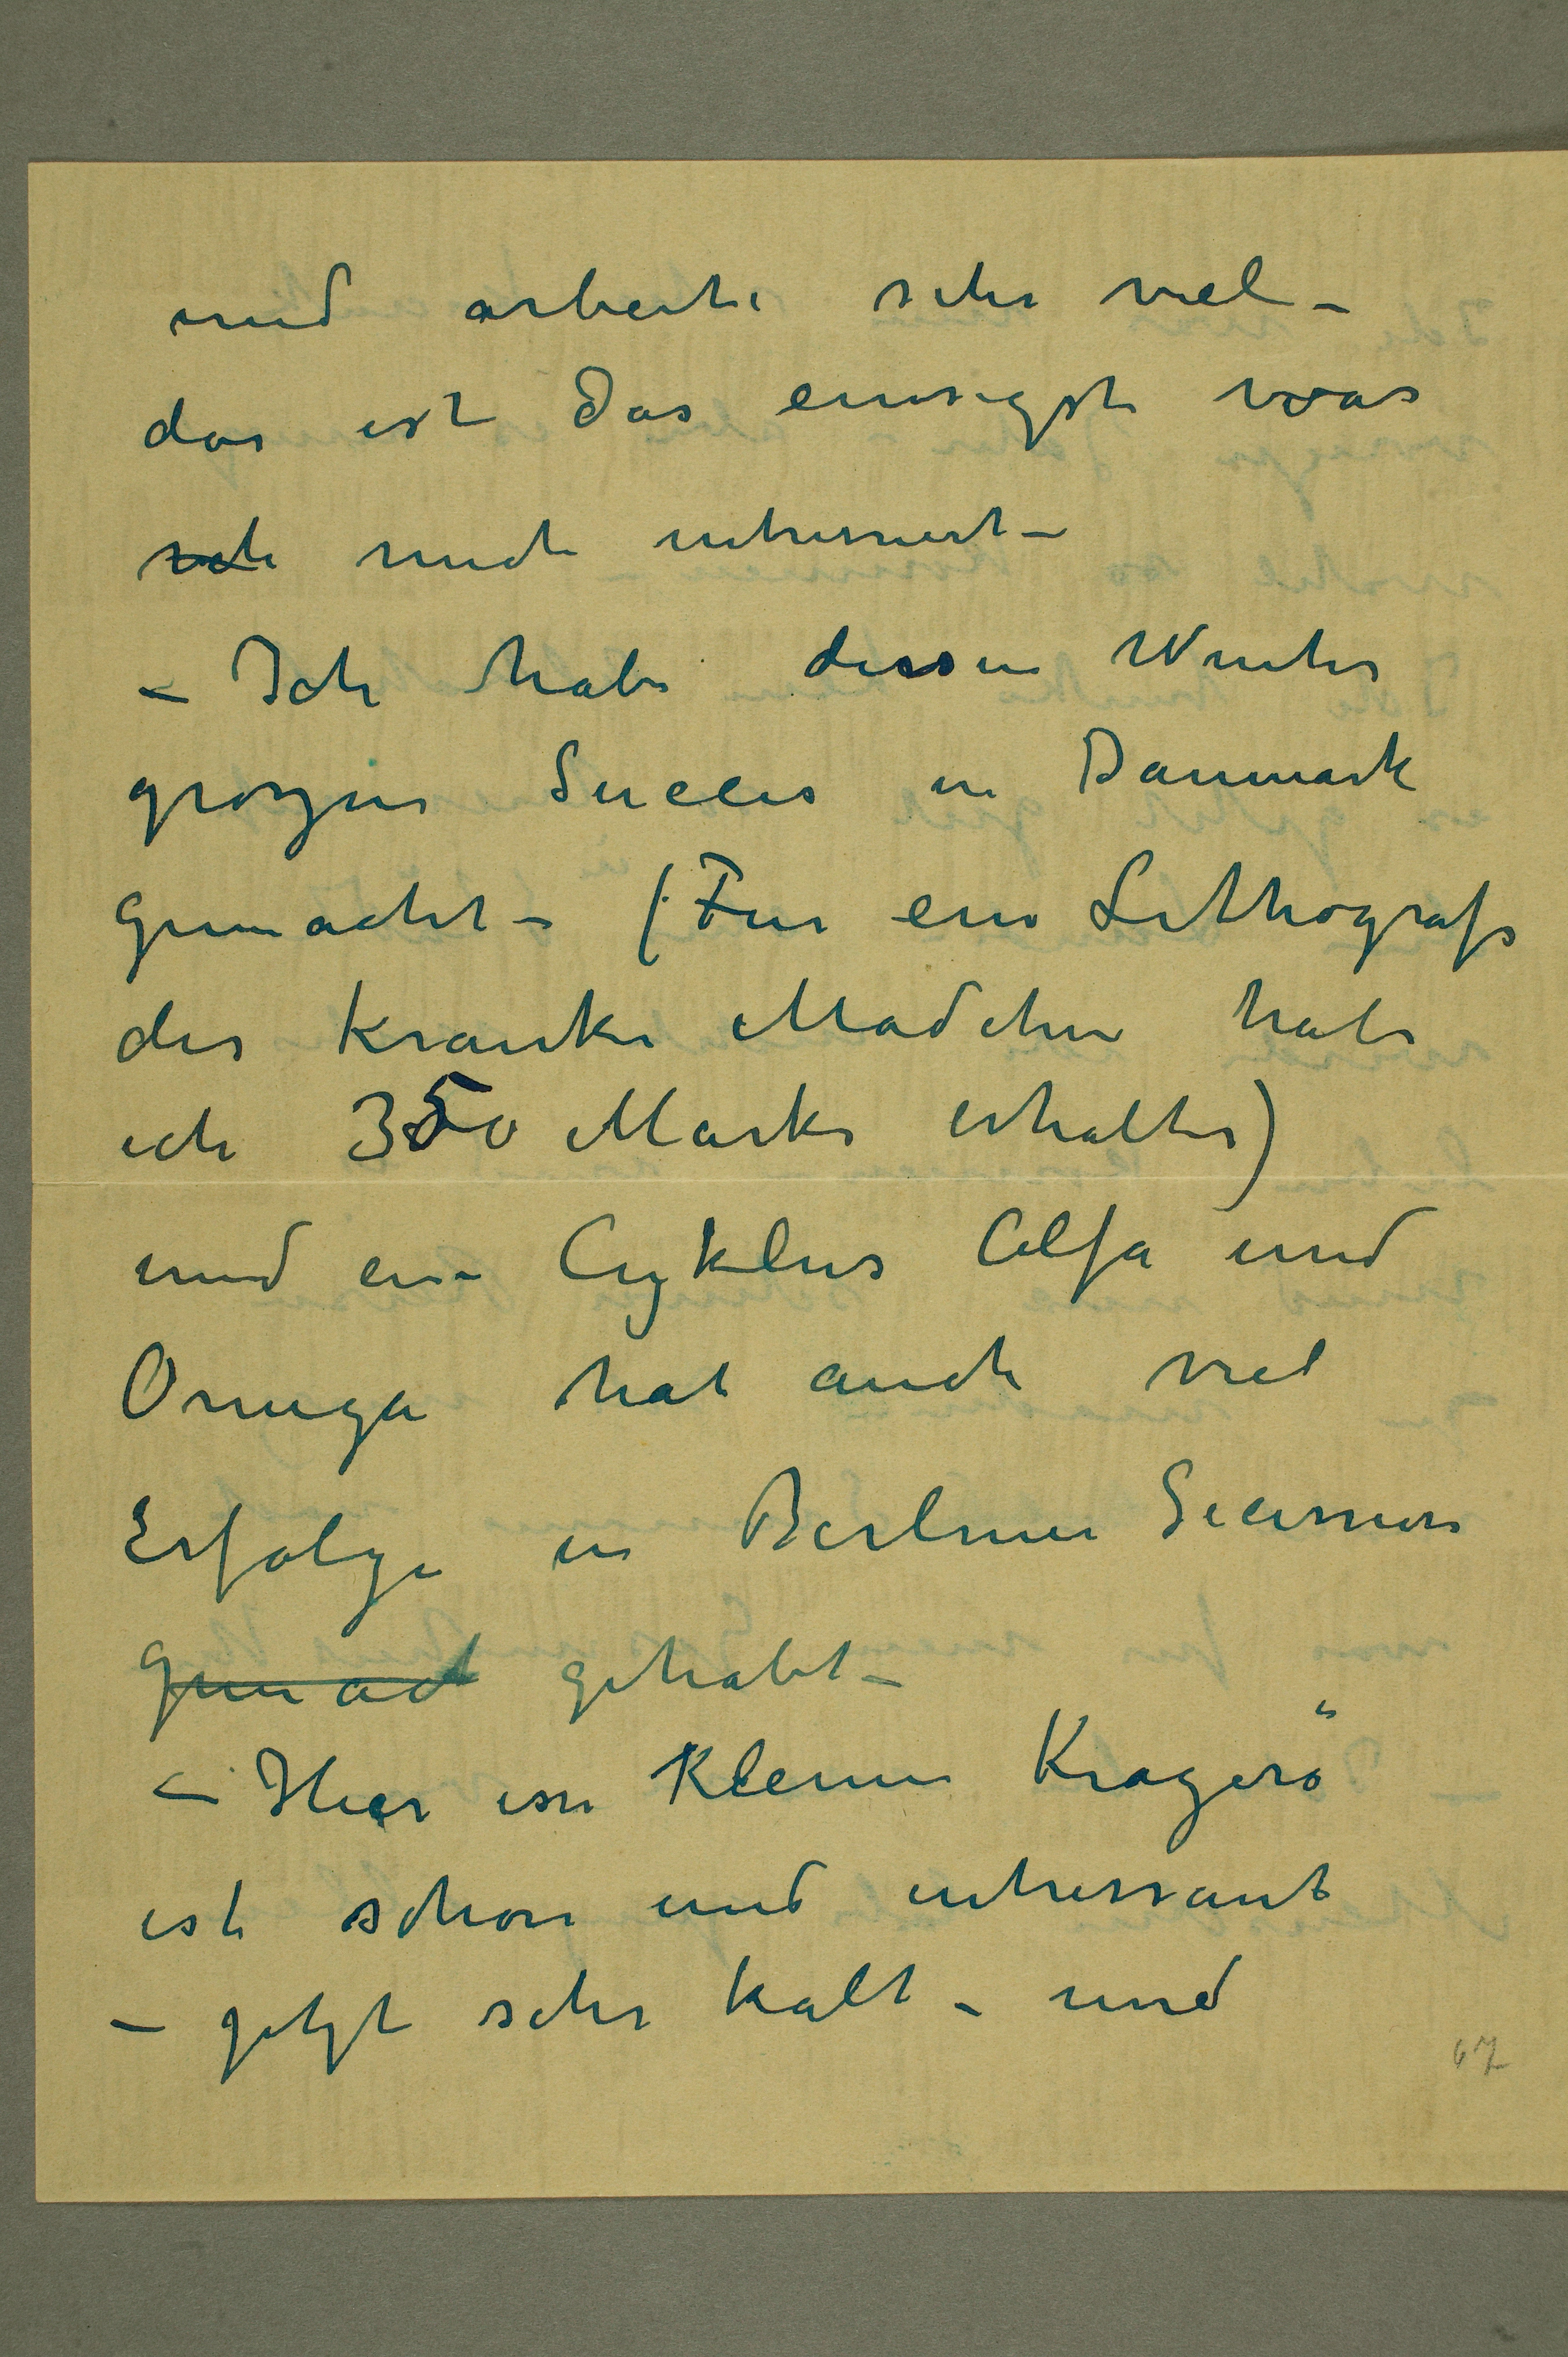 und arbeite sehr viel –
das ist das einsigste was
ich mich intressiert –
– Ich habe dissen Winter
grozen Succes in Danmark
gemacht – (Für ein Lithografi
des Kranke Mädchen habe
ich 350 Marks erhalten)
und ein Cyklus Alfa und
Omega hat auch viel
Erfolge in Berliner Secession
gemact gehabt –
– Hier im kleinen Kragerö
ist schön und intressant
– jetzt sehr kalt – und
67